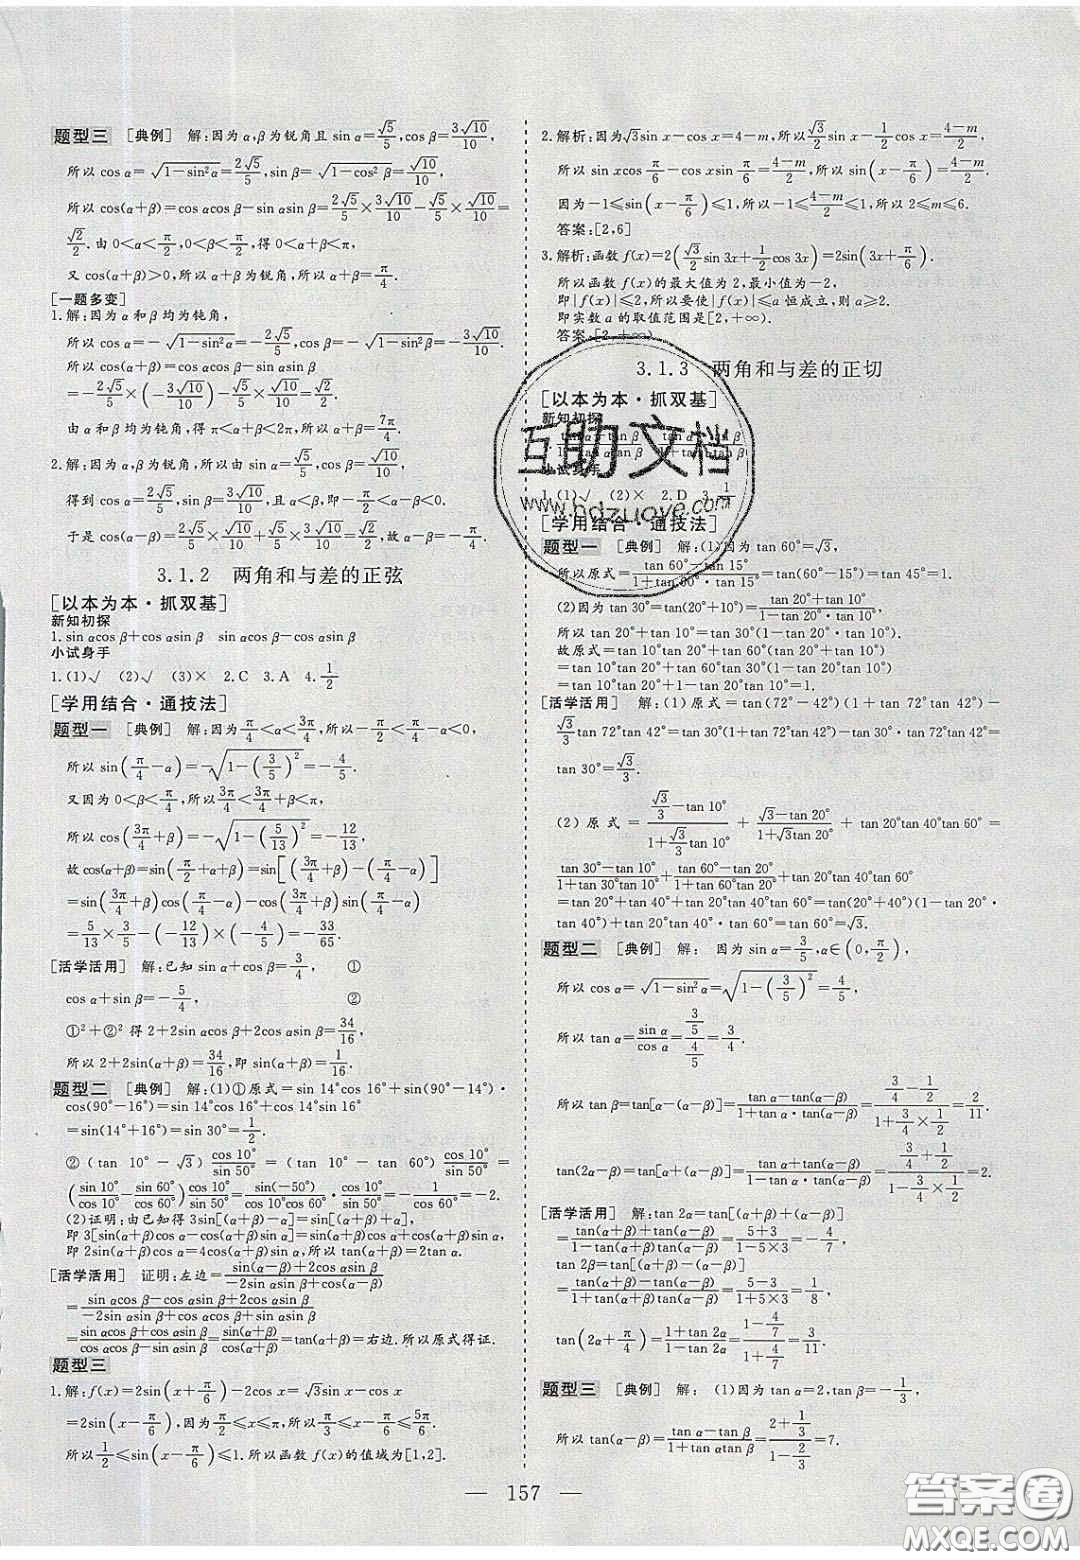 题型三 [典例] 解:因为 α,β为锐角且 sin α=√5/5,cos β=3√10/10,
所以 cos α=√(1-sin²α)=2√5/5,sin β=√(1-cos²β)=√10/10,
所以 cos(α+β)=cos αcos β-sin αsin β=2√5/5×3√10/10-√5/5×√10/10=
√2/2.由 0<α<π/2,0<β<π/2,得 0<α+β<π,
又 cos(α+β)>0,所以 α+β为锐角,所以 α+β=π/4.
[一题多变]
1.解:因为 α和 β均为钝角,
所以 cos α=-√(1-sin²α)=-2√5/5,cos β=-√(1-sin²β)=-3√10/10.
所以 cos(α+β)=cos αcos β-sin αsin β
=-2√5/5×(-3√10/10)-√5/5×√10/10=√2/2.
由 α和 β均为钝角,得 π<α+β<2π,所以 α+β=7π/4.
2.解:因为 α,β为锐角,sin α=√5/5,cos β=√10/10,
得到 cos α=2√5/5,sin β=3√10/10,且 α<β,即-π/2<α-β<0.
于是 cos(α-β)=2√5/5×√10/10+√5/5×3√10/10=√2/2,故 α-β=-π/4.
3.1.2 两角和与差的正弦
[以本为本·抓双基]
新知初探
1.sin αcos β+cos αsin β sin αcos β-cos αsin β
小试身手
1.(1)√ (2)√ (3)× 2.C 3.A 4.1/2
[学用结合·通技法]
题型一 [典例] 解:因为π/4<α<3π/4,所以-π/2<π/4-α<0,
所以 sin(π/4-α)=-√(1-(3/5)²)=-4/5.
又因为 0<β<π/4,所以3π/4<3π/4+β<π,
所以 cos(3π/4+β)=-√(1-(5/13)²)=-12/13,
故 cos(α+β)=sin(π/2+α+β)=sin[(3π/4+β)-(π/4-α)]
=sin(3π/4+β)cos(π/4-α)-cos(3π/4+β)sin(π/4-α)
=5/13×3/5-(-12/13)×(-4/5)=-33/65.
[活学活用] 解:已知 sin α+cos β=3/4, ①
cos α+sin β=-5/4, ②
①²+②² 得 2+2sin αcos β+2cos αsin β=34/16,
所以 2+2sin(α+β)=34/16,即 sin(α+β)=1/16.
题型二 [典例] 解:(1)①原式=sin 14°cos 16°+sin(90°-14°)·
cos(90°-16°)=sin 14°cos 16°+cos 14°sin 16°
=sin(14°+16°)=sin 30°=1/2.
②(tan 10°-√3)cos 10°/sin 50°=(tan 10°-tan 60°)cos 10°/sin 50°=
(sin 10°/cos 10°-sin 60°/cos 60°)cos 10°/sin 50°=sin(-50°)/(cos 10°cos 60°)·cos 10°/sin 50°=-1/cos 60°=-2.
(2)证明:由已知得 3sin[(α+β)-α]=sin[(α+β)+α],
即 3[sin(α+β)cos α-cos(α+β)sin α]=sin(α+β)cos α+cos(α+β)sin α,
即 2sin(α+β)cos α=4cos(α+β)sin α,所以 tan(α+β)=2tan α.
[活学活用] 证明:左边=(sin(α-β)+2cos αsin β)/(-2sin αsin β+cos(α-β))
=(sin αcos β-cos αsin β+2cos αsin β)/(-2sin αsin β+cos αcos β+sin αsin β)
=(sin αcos β+cos αsin β)/(cos αcos β-sin αsin β)=sin(α+β)/cos(α+β)=tan(α+β)=右边.所以原式得证.
题型三
1.解:f(x)=2sin(x+π/6)-2cos x=√3sin x-cos x
=2sin(x-π/6),因为π/2≤x≤π,所以π/3≤x-π/6≤5π/6.
所以1/2≤sin(x-π/6)≤1.所以函数 f(x)的值域为[1,2].
2.解析:因为√3sin x-cos x=4-m,所以√3/2sin x-1/2cos x=(4-m)/2,
所以 sin xcosπ/6-cos xsinπ/6=(4-m)/2,所以 sin(x-π/6)=(4-m)/2.
因为-1≤sin(x-π/6)≤1,所以-1≤(4-m)/2≤1,所以 2≤m≤6.
答案:[2,6]
3.解析:函数 f(x)=2(√3/2sin 3x+1/2cos 3x)=2sin(3x+π/6).
所以函数 f(x)的最大值为 2,最小值为-2.
即|f(x)|≤2,所以要使|f(x)|≤a 恒成立,则 a≥2.
即实数 a 的取值范围是[2,+∞).
答案:[2,+∞)
3.1.3 两角和与差的正切
[以本为本·抓双基]
新知初探
小试身手
1.(1)√ (2)× 2.D
[学用结合·通技法]
题型一 [典例] 解:(1)因为 tan 60°=√3,
所以原式=(tan 60°-tan 15°)/(1+tan 60°tan 15°)=tan(60°-15°)=tan 45°=1.
(2)因为 tan 30°=tan(20°+10°)=(tan 20°+tan 10°)/(1-tan 20°tan 10°),
所以 tan 20°+tan 10°=tan 30°(1-tan 20°tan 10°).
故原式=tan 10°tan 20°+tan 60°tan 30°(1-tan 20°tan 10°)
=tan 10°tan 20°+1-tan 10°tan 20°=1.
[活学活用] 解:(1)原式=tan(72°-42°)(1+tan 72°tan 42°)-
√3/3tan 72°tan 42°=tan 30°(1+tan 72°tan 42°)-tan 30°·tan 72°tan 42°=
tan 30°=√3/3.
(2)原式=(√3/3-tan 10°)/(1+√3/3tan 10°)+(√3-tan 20°)/(1+√3tan 20°)+tan 20°tan 40°tan 60°=
(tan 30°-tan 10°)/(1+tan 30°tan 10°)+(tan 60°-tan 20°)/(1+tan 60°tan 20°)+tan 20°tan 40°tan 60°
=tan 20°+tan 40°+tan 20°tan 40°tan 60°=tan(20°+40°)(1-tan 20°·
tan 40°)+tan 20°tan 40°·tan 60°=tan 60°=√3.
题型二 [典例] 解:因为 sin α=3/5,α∈(0,π/2),
所以 cos α=√(1-sin²α)=√(1-(3/5)²)=4/5,
所以 tan α=sin α/cos α=(3/5)/(4/5)=3/4.
所以 tan β=tan[α-(α-β)]=(tan α-tan(α-β))/(1+tan α·tan(α-β))=(3/4-1/2)/(1+3/4×1/2)=2/11.
tan(2α-β)=tan[α+(α-β)]=(tan α+tan(α-β))/(1-tan α·tan(α-β))=(3/4+1/2)/(1-3/4×1/2)=2.
[活学活用] 解:tan 2α=tan[(α+β)+(α-β)]
=(tan(α+β)+tan(α-β))/(1-tan(α+β)tan(α-β))=(5+3)/(1-5×3)=-4/7,
tan 2β=tan[(α+β)-(α-β)]
=(tan(α+β)-tan(α-β))/(1+tan(α+β)tan(α-β))=(5-3)/(1+5×3)=1/8,
tan(2α+π/4)=(1+tan 2α)/(1-tan 2α)=(1-4/7)/(1+4/7)=3/11.
题型三 [典例] 解:(1)因为 tan α=2,tan β=-1/3,
所以 tan(α-β)=(tan α-tan β)/(1+tan αtan β)=(2+1/3)/(1-2/3)=7.
— 157 —
互助文档
www.hdzuoye.com
答案圈
MXQE.COM